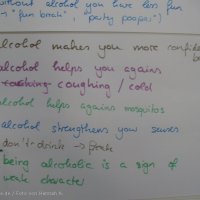 without alcohol you have less fun
→ "fun brake", "party pooper")
alcohol makes you more confident
alcohol helps you agains
coughing / cold
alcohol helps agains mosquitos
alcohol strengthens your senses
don't drink → freak
being alcoholic is a sign of
weak character